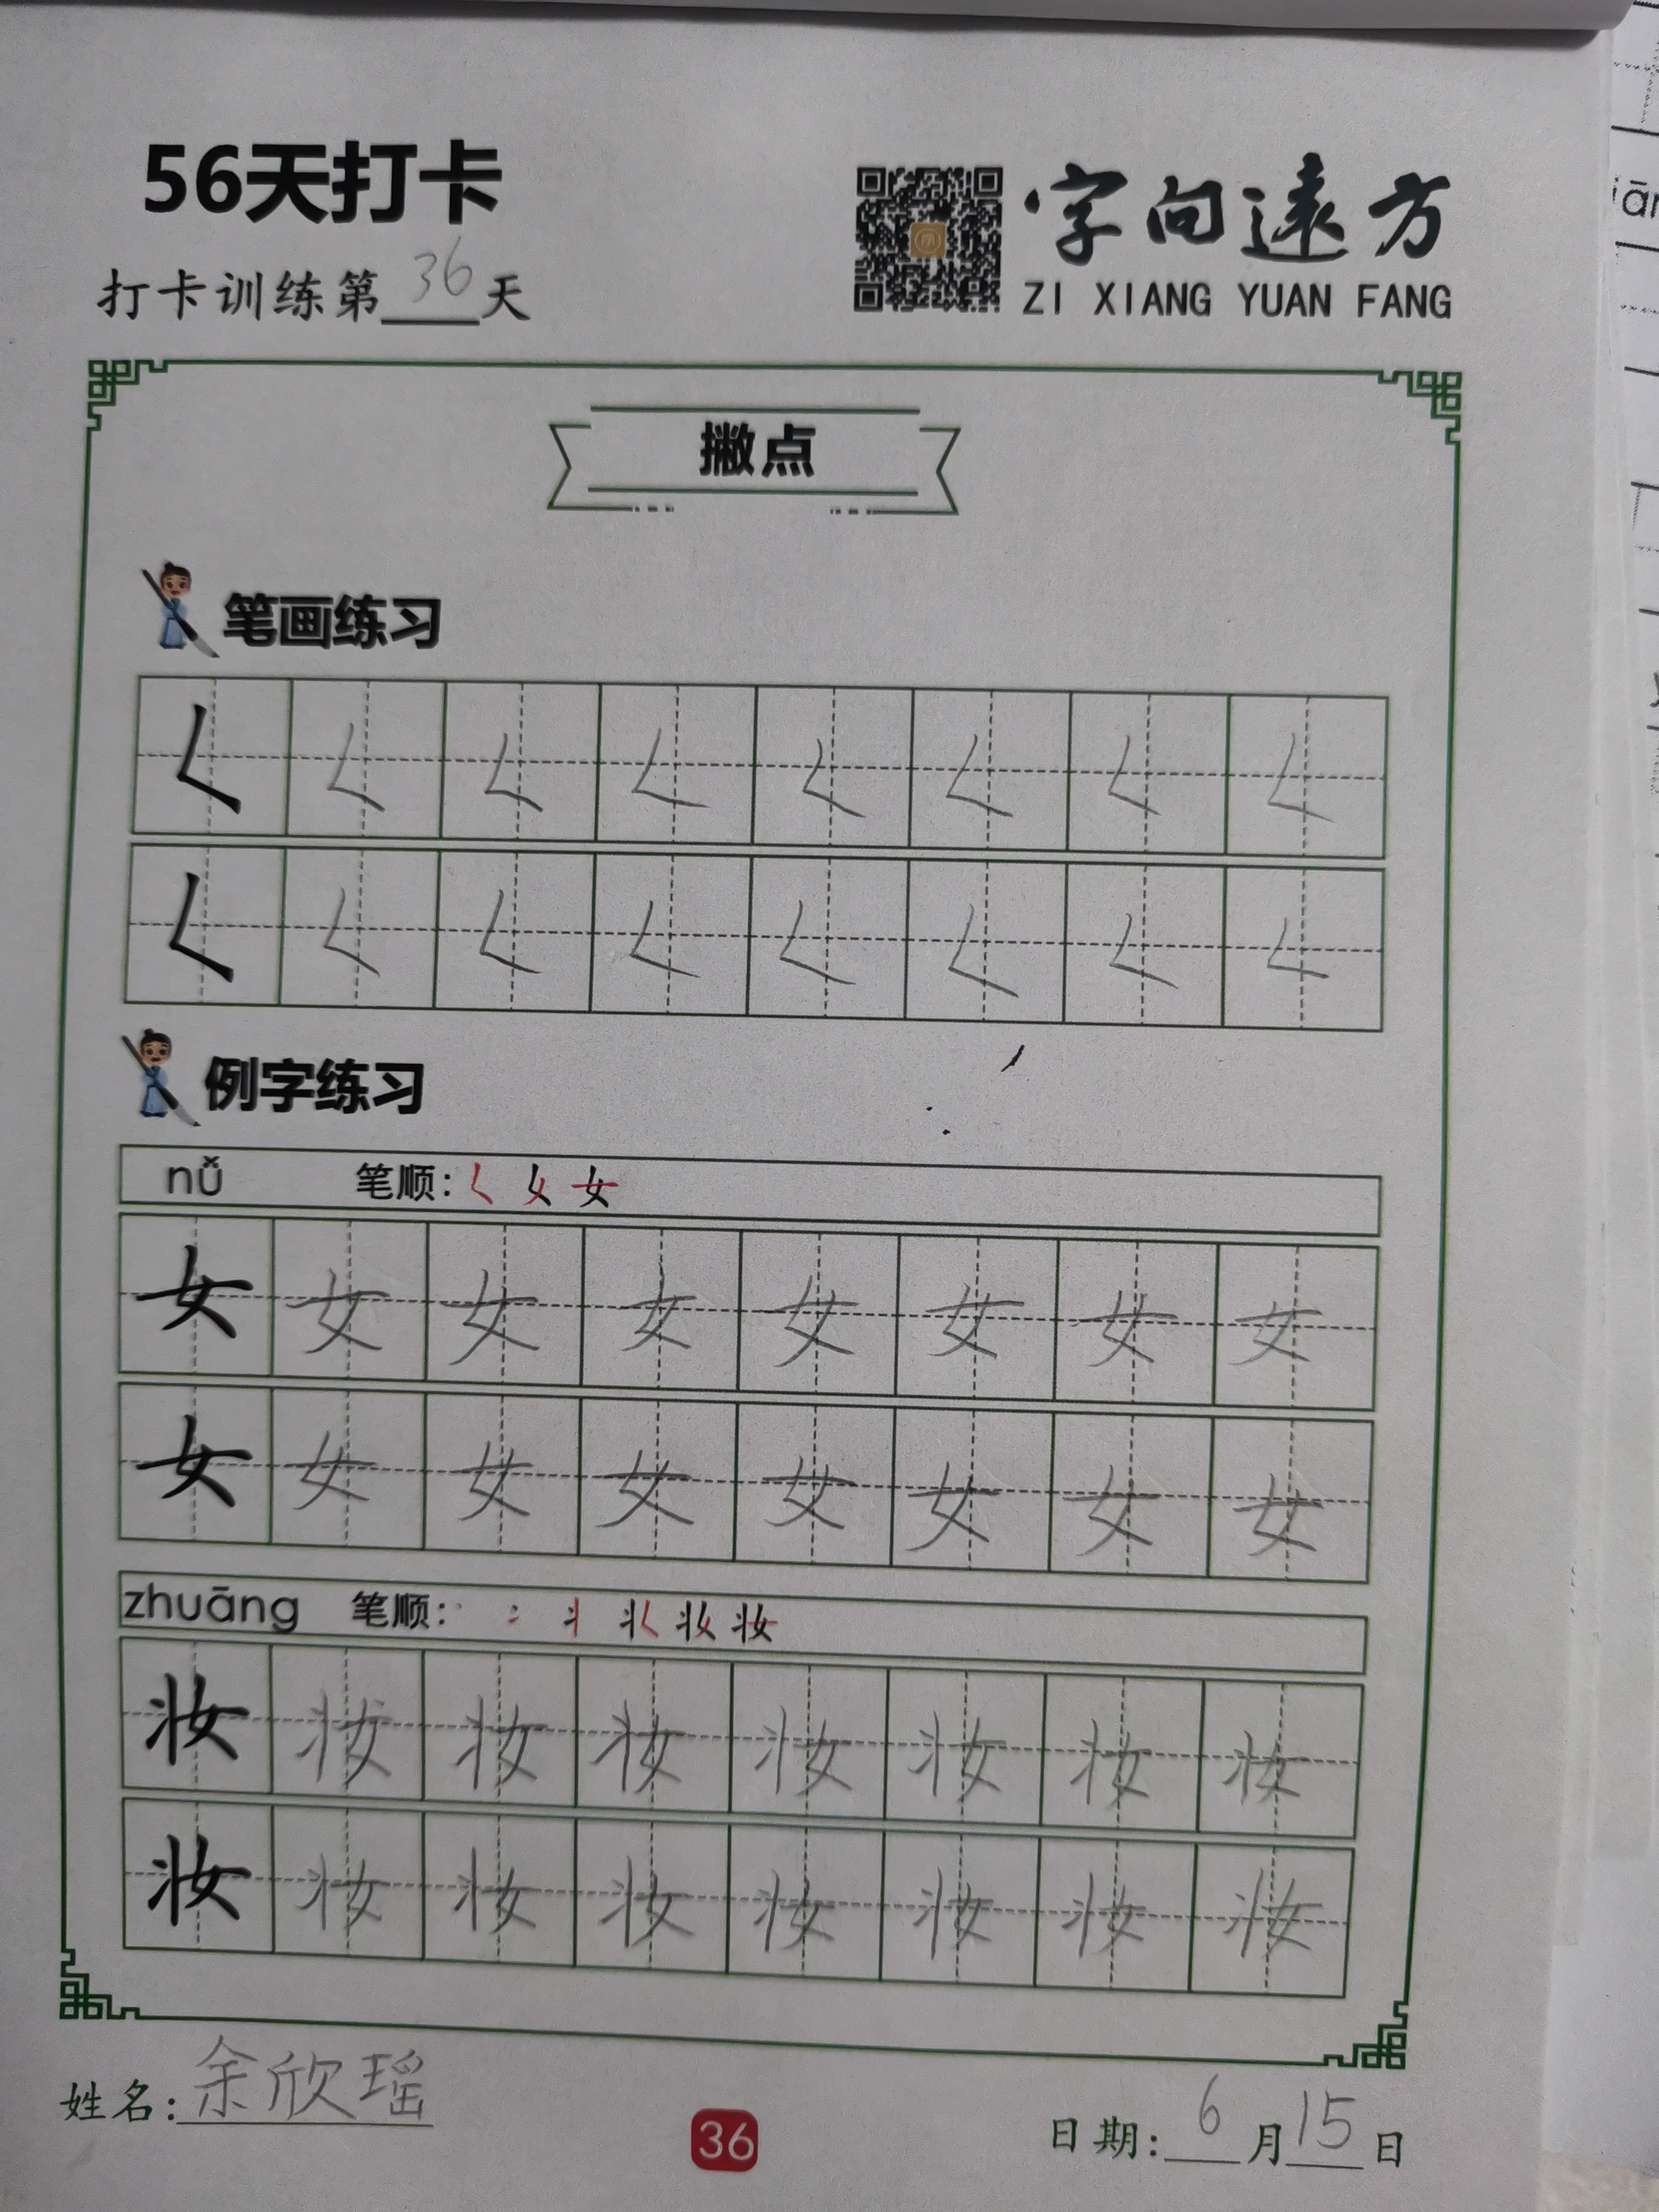 56天打卡
字向遠方
打卡训练第36天
ZI XIANG YUAN FANG
撇点
笔画练习
𡿨 𡿨 𡿨 𡿨 𡿨 𡿨 𡿨 𡿨
𡿨 𡿨 𡿨 𡿨 𡿨 𡿨 𡿨 𡿨
例字练习
nǚ 笔顺: 女
女 女 女 女 女 女 女 女
女 女 女 女 女 女 女 女
zhuāng 笔顺: 妆
妆 妆 妆 妆 妆 妆 妆 妆
妆 妆 妆 妆 妆 妆 妆 妆
姓名: 余欣瑶
36
日期: 6月15日